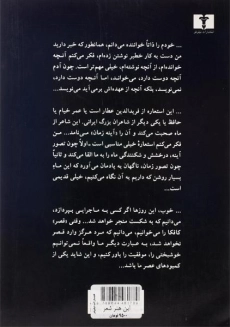 ... خودم را ذاتاً خواننده می‌دانم، همانطورکه خبر دارید
من دست به کار خطیر نوشتن زده‌ام، فکر می‌کنم آنچه
خوانده‌ام، از آنچه نوشته‌ام، خیلی مهم‌تر است. چون آدم
آنچه دوست دارد، می‌خواند، اما آنچه دوست دارد،
نمی‌نویسد، بلکه آنچه از عهده‌اش برمی آید می‌نویسد...
... این استعاره از فریدالدین عطار است یا عمر خیام یا
حافظ یا یکی دیگر از شاعران بزرگ ایرانی. این شاعر از
ماه صحبت می‌کند و آن را «آینه زمان» می‌نامد... من
فکر می‌کنم استعارهٔ خیلی مناسبی است. اولاً چون تصور
آینه، درخشش و شکنندگی ماه را به ما القا می‌کند و ثانیاً
چون تصور زمان، ناگهان به یادمان می‌آورد که این ماهِ
بسیار روشن که داریم به آن نگاه می‌کنیم، خیلی قدیمی
است...
... خوب، این روزها اگر کسی به ماجرایی بپردازد،
می‌دانیم که به شکست منجر خواهد شد. وقتی «قصر»
کافکا را می‌خوانیم، می‌دانیم که مرد هرگز وارد قصر
نخواهد شد، به عبارت دیگر ما واقعاً نمی‌توانیم
خوشبختی را، موفقیت را باور کنیم، و این شاید یکی از
کمبودهای عصر ما باشد...
این هنر شعر